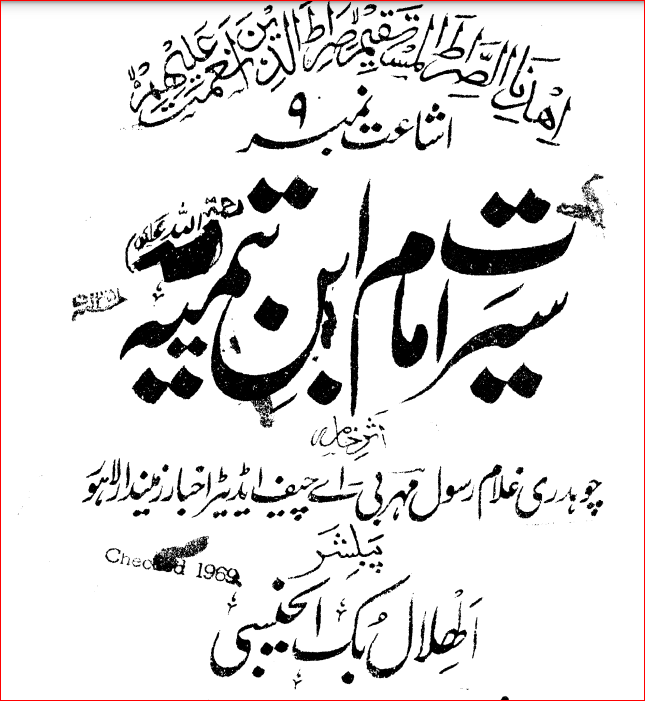 اِهْدِنَا الصِّرَاطَ الْمُسْتَقِيْمَ صِرَاطَ الَّذِيْنَ اَنْعَمْتَ عَلَيْهِمْ
اشاعت نمبر ۹
سیرت امام ابنِ تیمیہ
رحمۃ اللہ علیہ
اثرِ خامہ
چوہدری غلام رسول مہر بی۔اے چیف ایڈیٹر اخبار زمیندار لاہور
پبلشر
Checked 1969
الہلال بک ایجنسی